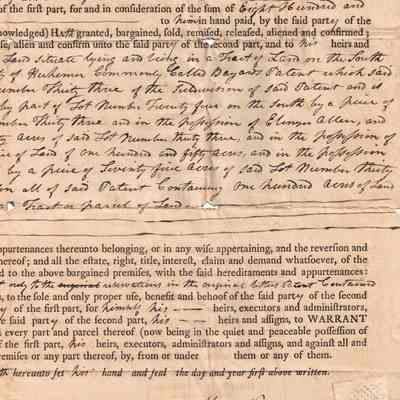 of the first part, for and in consideration of the sum of Eight Hundred and
to him in hand paid, by the said party of the
nowledged) Hath granted, bargained, sold, remised, released, aliened and confirmed;
se, alien and confirm unto the said party of the second part, and to his heirs and
Land situate lying and being in a Tract of Land on the South
ty of Herkemer Commonly Called Bayards Patent which said
umber Thirty three of the Subdivision of said Patent and is
by part of Lot Number Twenty five on the South by a piece of
mber Thirty three and in the possession of Elmer Allen, and
ty acres of said Lot Number thirty three, and in the possession of
ece of Land of one hundred and fifty acres, and in the possession
by a piece of Seventy five acres of said Lot Number thirty
in all of said Patent Containing one hundred acres of Land
Tract or parcel of Land
ppurtenances thereunto belonging, or in any wise appertaining, and the reversion and
hereof; and all the estate, right, title, interest, claim and demand whatsoever, of the
d to the above bargained premises, with the said hereditaments and appurtenances:
only to the original reservations in the original letters Patent Contained
s, to the sole and only proper use, benefit and behoof of the said party of the second
y of the first part, for himself, his heirs, executors and administrators,
e said party of the second part, his heirs and assigns, to WARRANT
d every part and parcel thereof (now being in the quiet and peaceable possession of
f the first part, his heirs, executors, administrators and assigns, and against all and
remises or any part thereof, by, from or under them or any of them.
th hereunto set his hand and seal the day and year first above written.